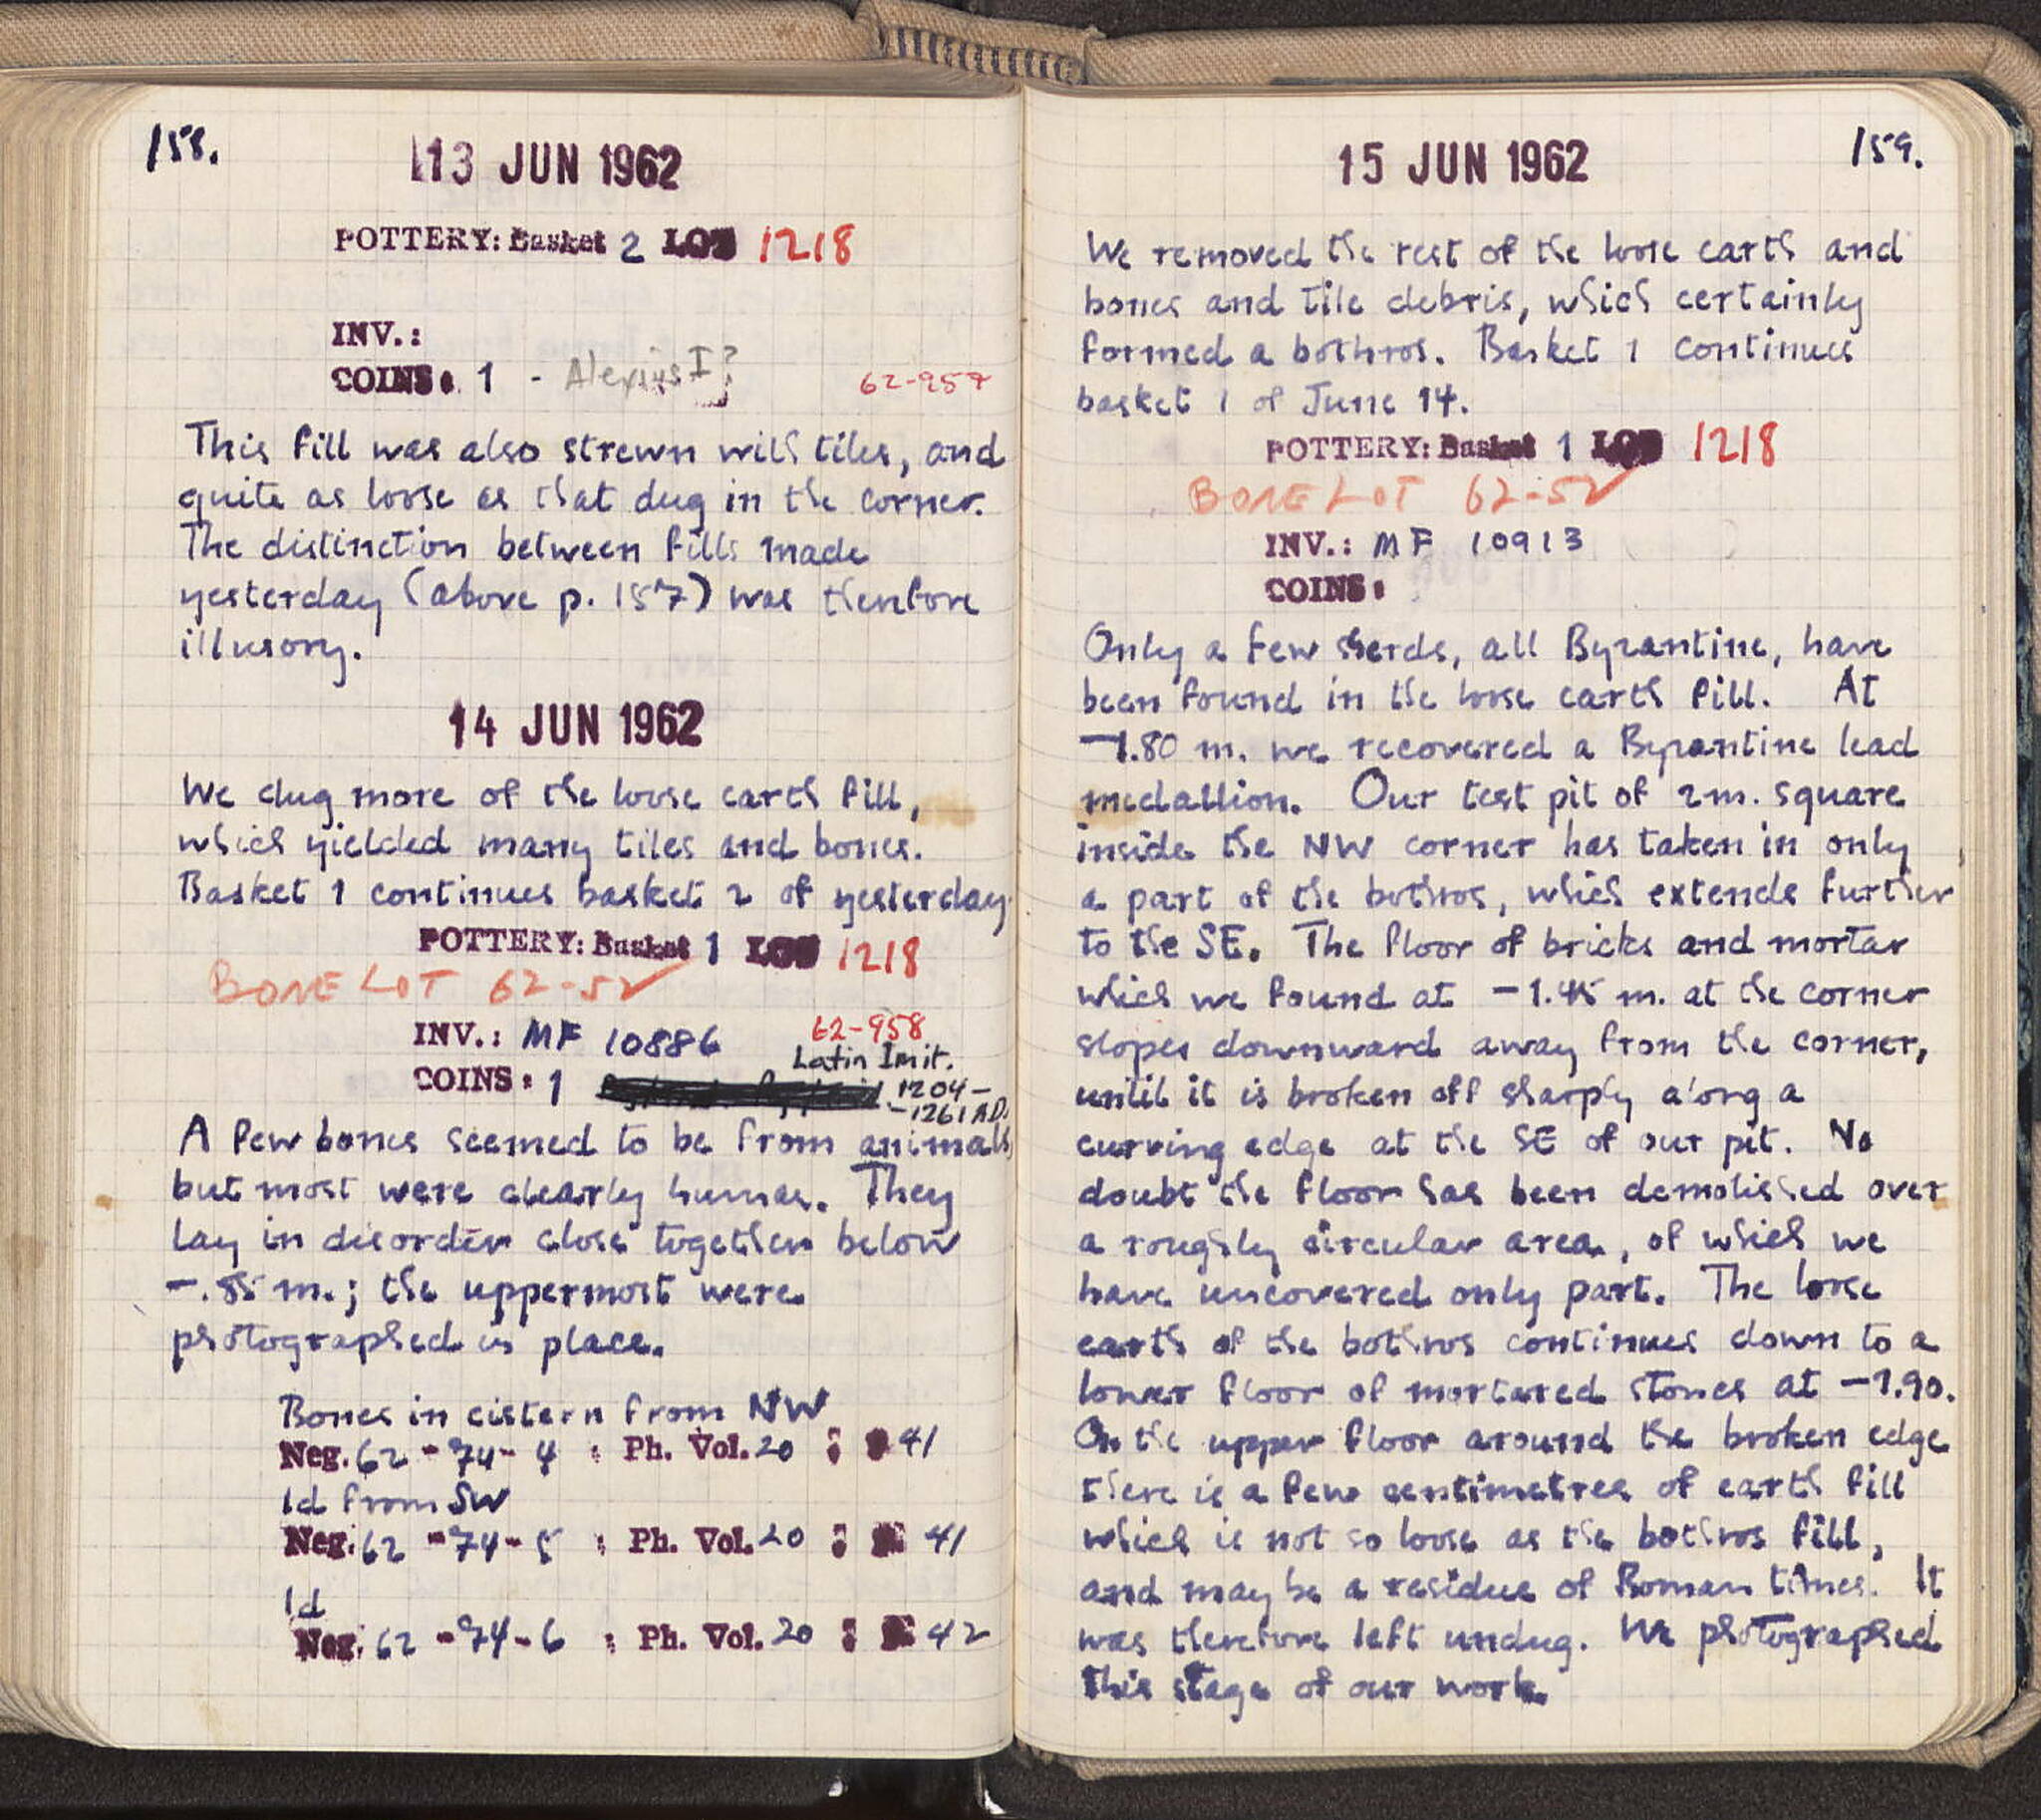 158.
13 JUN 1962
POTTERY: Basket 2 LOT 1218
INV.:
COINS: 1 - Alexius I?
62-957
This fill was also strewn with tiles, and
quite as loose as that dug in the corner.
The distinction between fills made
yesterday (above p. 157) was therefore
illusory.
14 JUN 1962
We dug more of the loose earth fill,
which yielded many tiles and bones.
Basket 1 continues basket 2 of yesterday.
POTTERY: Basket 1 LOT 1218
BONE LOT 62-52
INV.: MF 10886
62-958
Latin Imit.
COINS: 1
1204-
-1261 A.D.
A few bones seemed to be from animals,
but most were clearly human. They
lay in disorder close together below
-.85 m.; the uppermost were
photographed in place.
Bones in cistern from NW
Neg. 62-74-4 : Ph. Vol. 20 : 41
Id from SW
Neg. 62-74-5 : Ph. Vol. 20 : 41
Id
Neg. 62-74-6 : Ph. Vol. 20 : 42
159.
15 JUN 1962
We removed the rest of the loose earth and
bones and tile debris, which certainly
formed a bothros. Basket 1 continues
basket 1 of June 14.
POTTERY: Basket 1 LOT 1218
BONE LOT 62-52
INV.: MF 10913
COINS:
Only a few sherds, all Byzantine, have
been found in the loose earth fill. At
-1.80 m. we recovered a Byzantine lead
medallion. Our test pit of 2m. square
inside the NW corner has taken in only
a part of the bothros, which extends further
to the SE. The floor of bricks and mortar
which we found at -1.45 m. at the corner
slopes downward away from the corner,
until it is broken off sharply along a
curving edge at the SE of our pit. No
doubt the floor has been demolished over
a roughly circular area, of which we
have uncovered only part. The loose
earth of the bothros continues down to a
lower floor of mortared stones at -1.90.
On the upper floor around the broken edge
there is a few centimetres of earth fill
which is not so loose as the bothros fill,
and may be a residue of Roman times. It
was therefore left undug. We photographed
this stage of our work.